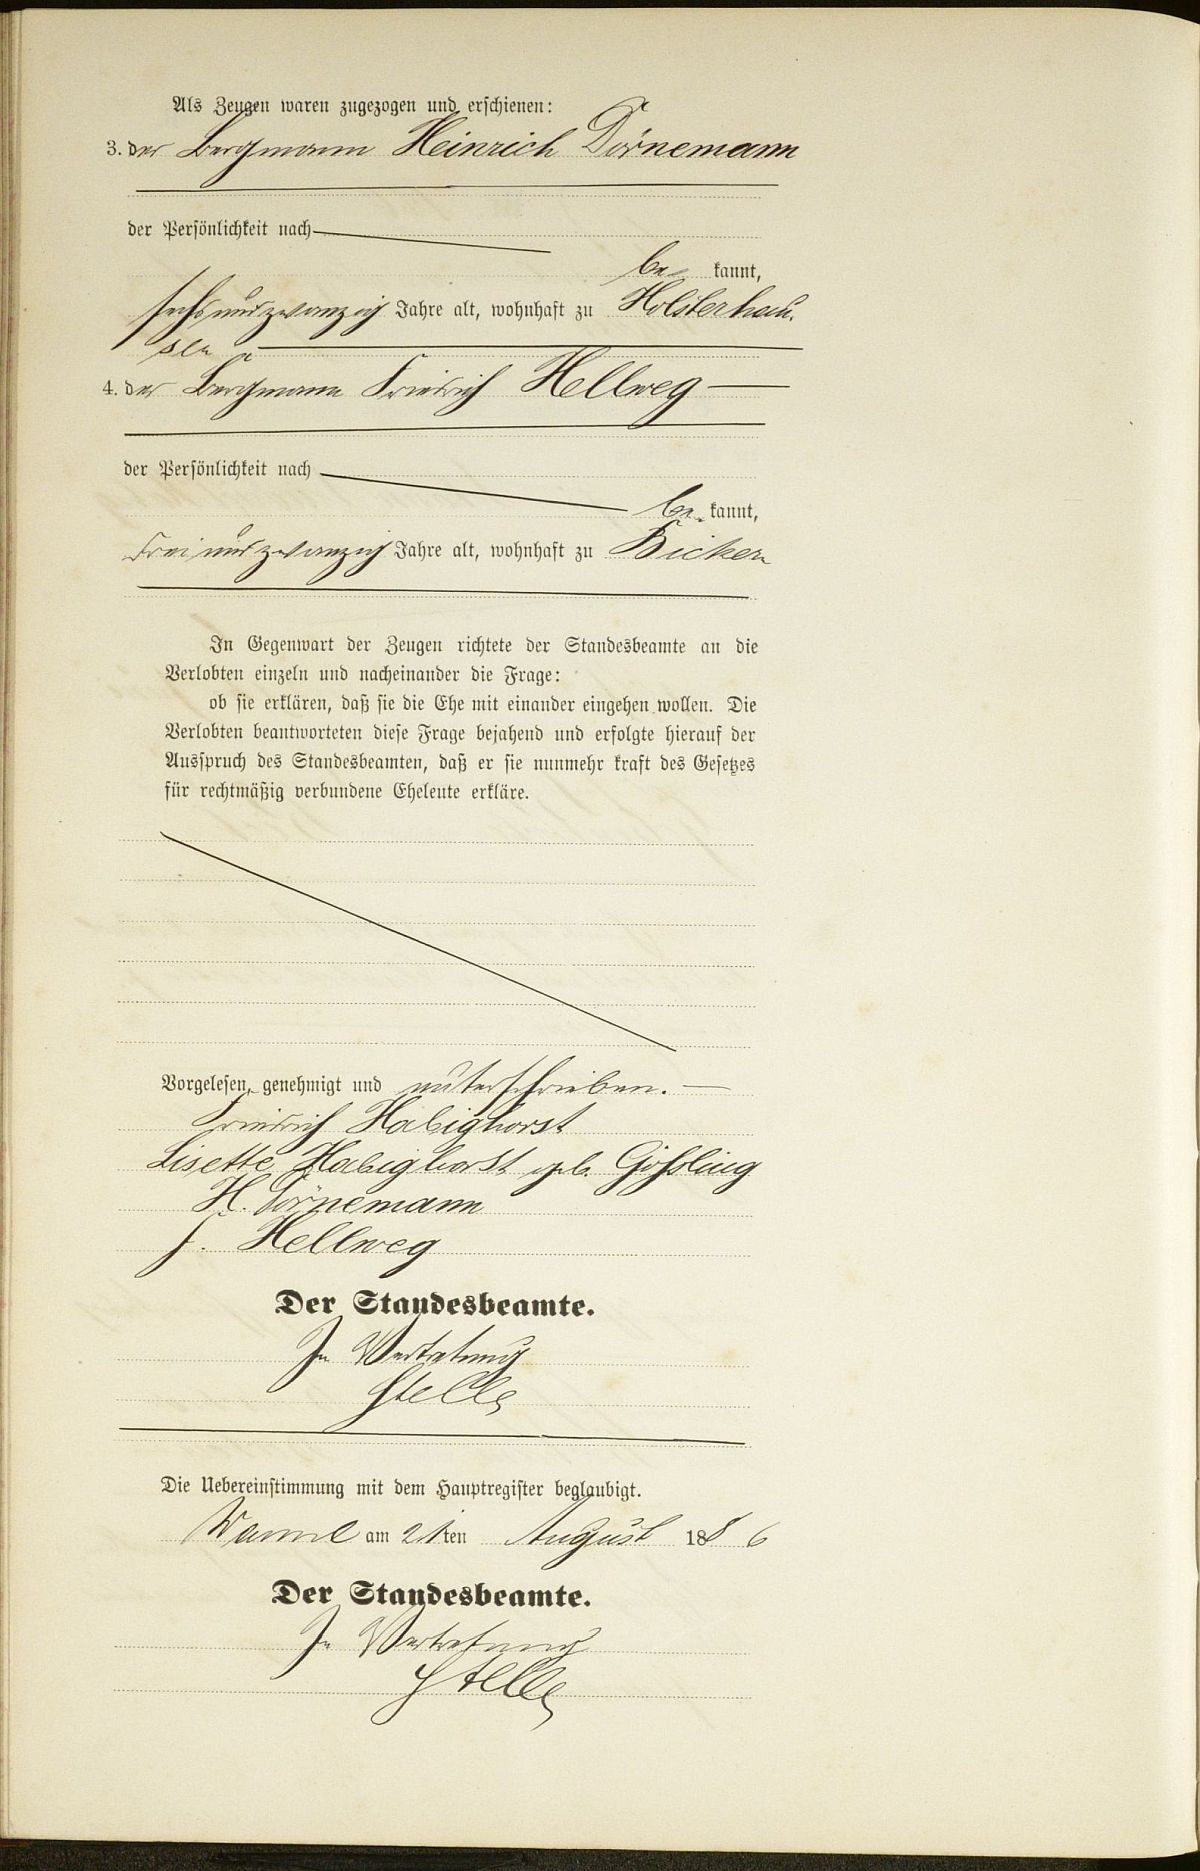 Als Zeugen waren zugezogen und erschienen:
3. der Bergmann Heinrich Dörnemann
der Persönlichkeit nach
be kannt,
sechsundzwanzig Jahre alt, wohnhaft zu Holsterhau-
sen
4. der Bergmann Friedrich Hellweg
der Persönlichkeit nach
be kannt,
dreiundzwanzig Jahre alt, wohnhaft zu Bickern
In Gegenwart der Zeugen richtete der Standesbeamte an die
Verlobten einzeln und nacheinander die Frage:
ob sie erklären, daß sie die Ehe mit einander eingehen wollen. Die
Verlobten beantworteten diese Frage bejahend und erfolgte hierauf der
Ausspruch des Standesbeamten, daß er sie nunmehr kraft des Gesetzes
für rechtmäßig verbundene Eheleute erkläre.
Vorgelesen, genehmigt und unterschrieben.
Friedrich Habighorst
Lisette Habighorst geb. Gößling
H. Dörnemann
F. Hellweg
Der Standesbeamte.
In Vertretung
Stelle
Die Uebereinstimmung mit dem Hauptregister beglaubigt.
Wanne am 21ten August 1886
Der Standesbeamte.
In Vertretung
Stelle